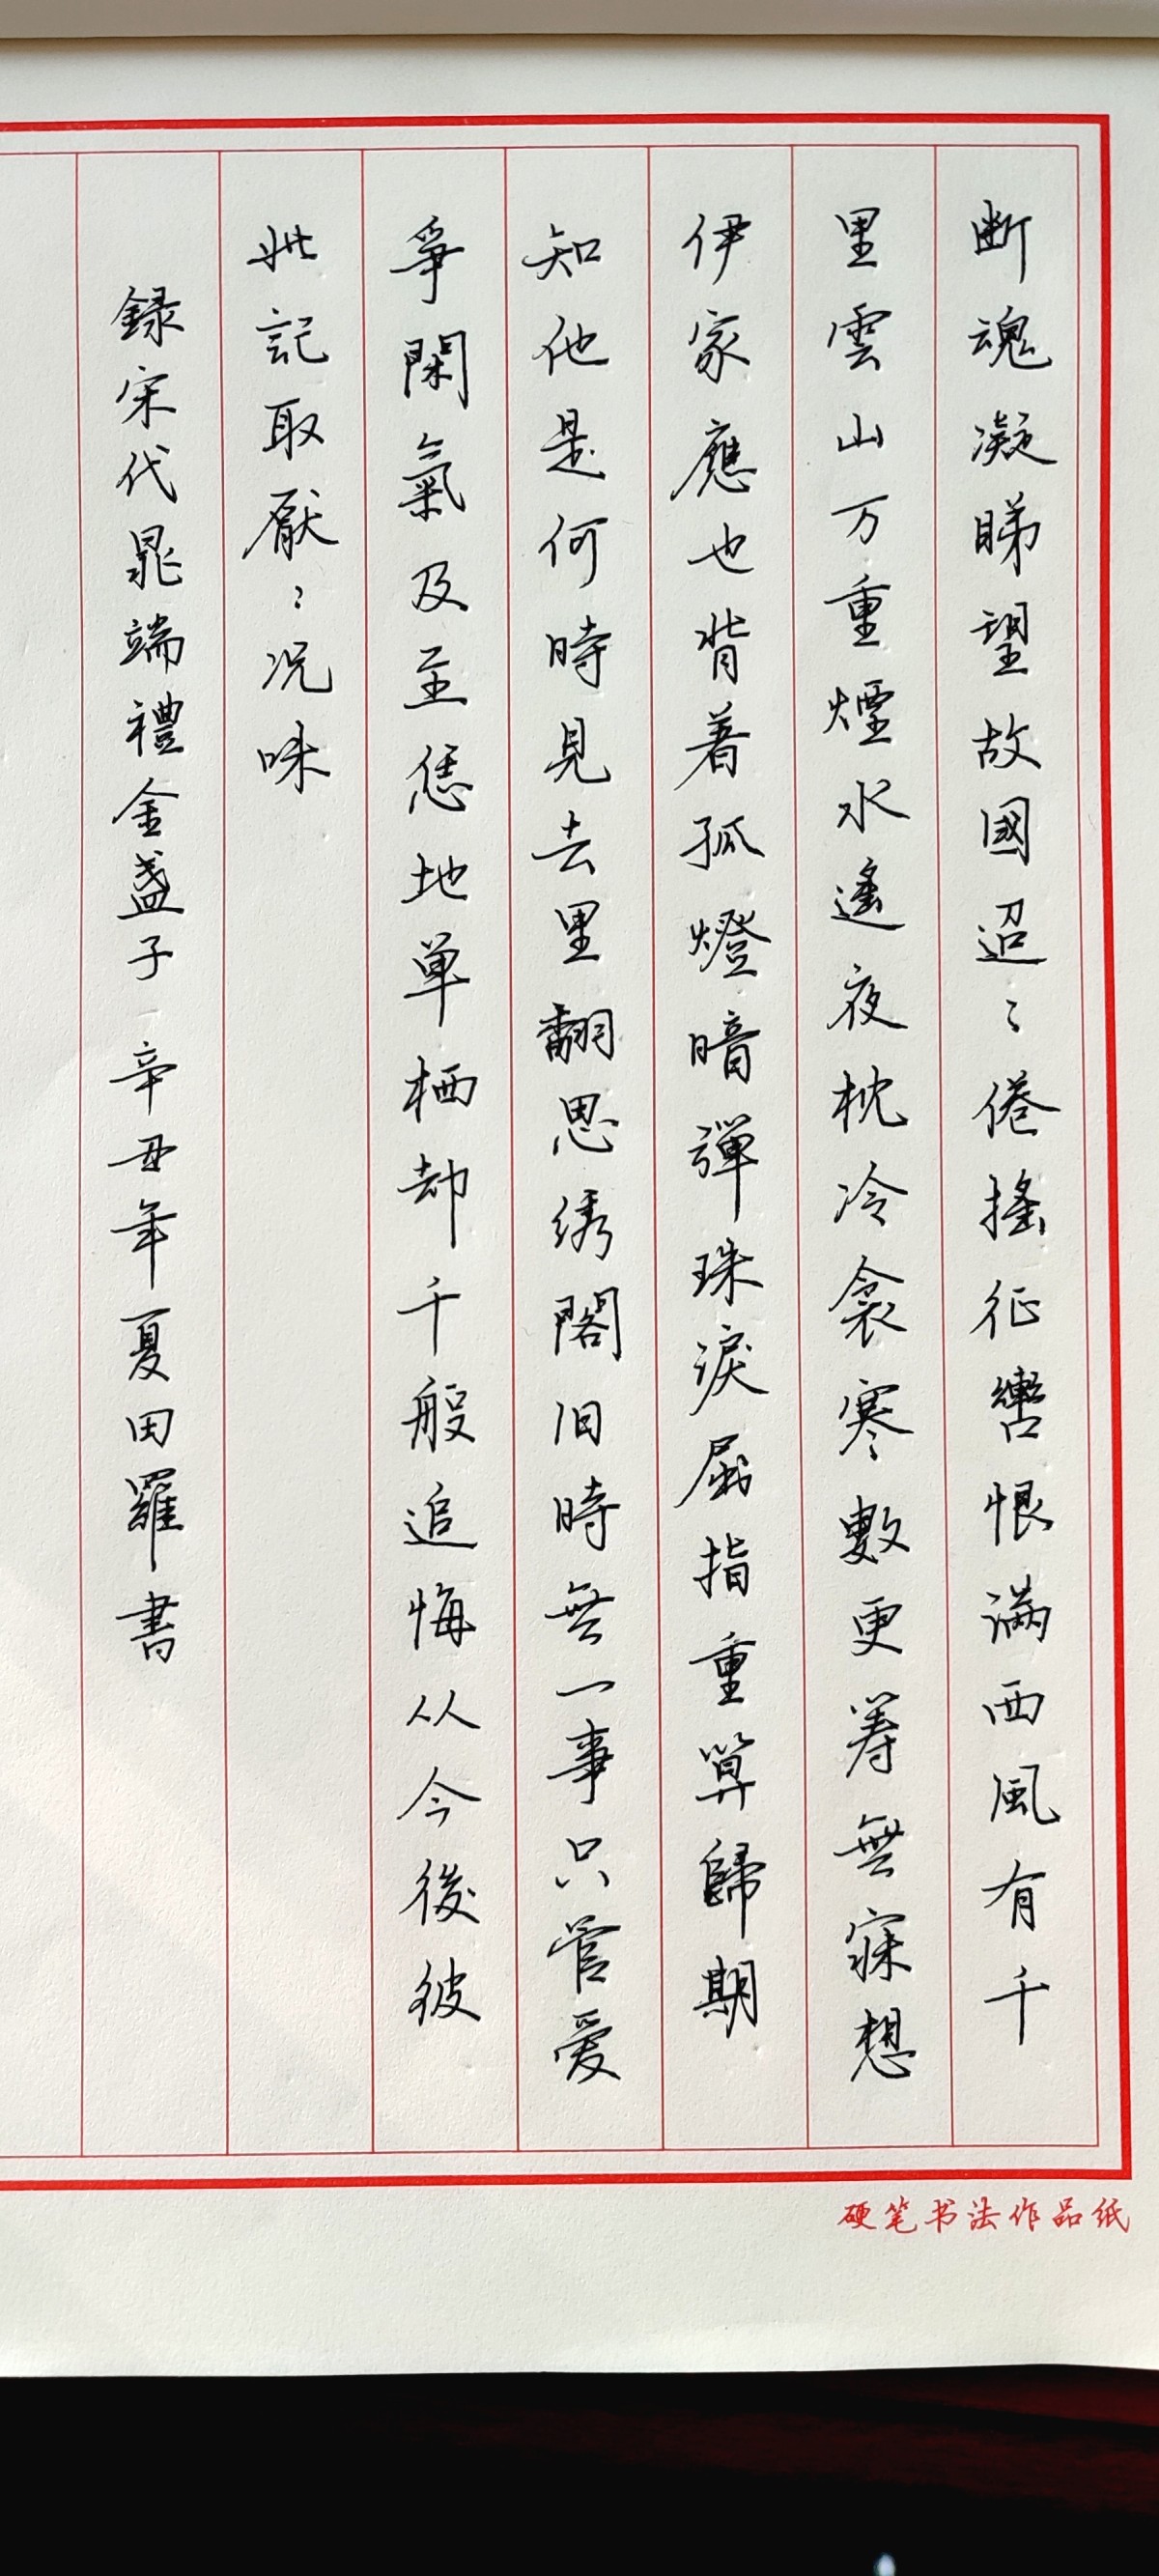 断魂凝睇望故國迢〻倦摇征轡恨满西風有千
里雲山万重煙水遙夜枕冷衾寒數更筹無寐想
伊家應也背着孤燈暗彈珠淚屈指重算歸期
知他是何時見去里翻思绣閣旧時無一事只管爱
爭閑氣及至恁地单栖却千般追悔从今後彼
此記取厭〻况味
錄宋代晁端禮金盞子 辛丑年夏田羅書
硬笔书法作品纸